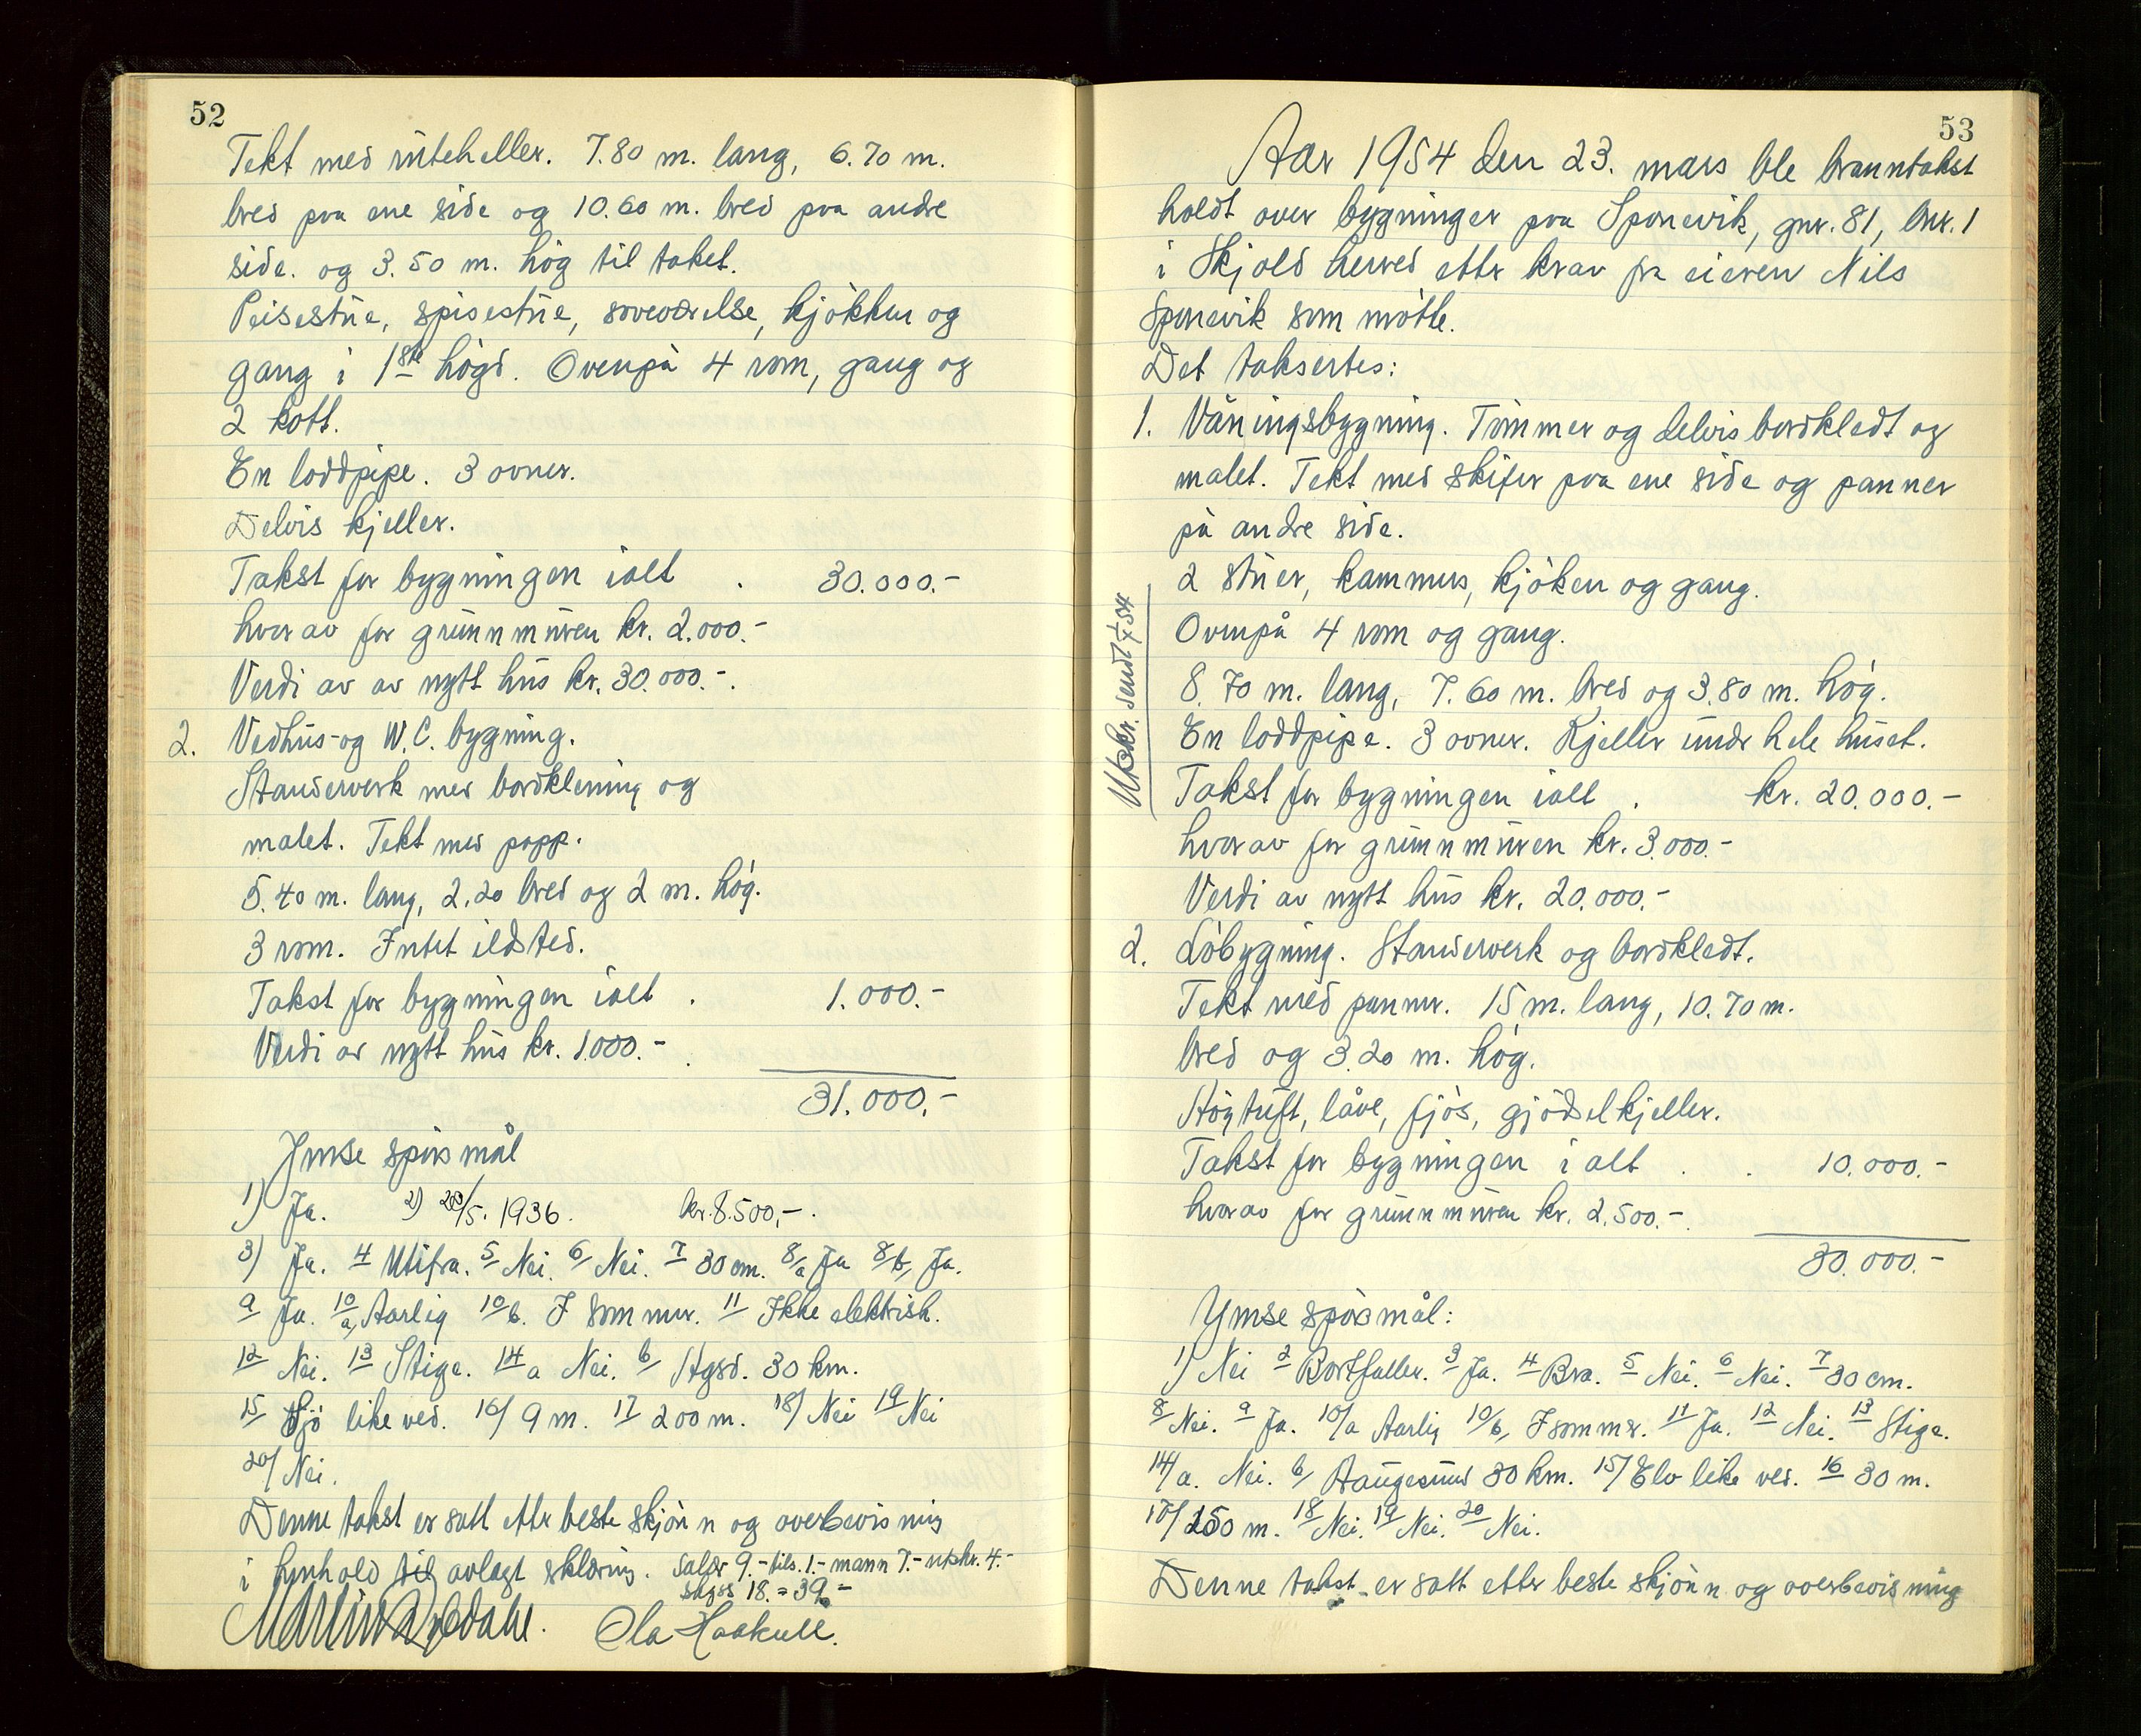 52
Tekt med uteheller. 7.80 m. lang, 6.70 m.
bred paa ene side og 10.60 m. bred paa andre
side. og 3.50 m. hög til taket.
Peisestue, spisestue, soveværelse, kjökken og
gang i 1ste högd. Ovenpå 4 rom, gang og
2 kott.
En loddpipe. 3 ovner.
Delvis kjeller.
Takst for bygningen ialt . 30.000.-
hvorav for grunnmuren kr. 2.000.-
Verdi av av nytt hus kr. 30.000.-.
2. Vedhus- og W.C. bygning.
Stanserverk med bordkledning og
malet. Tekt med papp.
5.40 m. lang, 2.20 bred og 2 m. hög.
3 rom. Intet ildsted.
Takst for bygningen ialt . 1.000.-
Verdi av nytt hus kr. 1.000.-.
31.000.-
Ymse spörsmål
1) Ja. 2) /5. 1936. kr. 8.500,-.
3) Ja. 4 Utifra. 5 Nei. 6/ Nei. 7 30 cm. 8/a Ja 8/b, Ja.
9 Ja. 10 a, Aarlig 10 b. I sommer. 11 Ikke elektrisk.
12 Nei. 13 Stige. 14 a Nei. b/ Hgsd. 30 km.
15 Sjö like ved. 16/ 9 m. 17 200 m. 18/ Nei 19 Nei
20/ Nei.
Denne takst er satt etter beste skjönn og overbevisning
i henhold til avlagt erklæring. Salær 9.- tils. 1.- mann 7.- utskr. 4.-
skyss 18. = 39.-
Ola Haakull.
53
Aar 1954 den 23. mars ble branntakst
holdt over bygninger paa Sponevik, gnr. 81, bnr. 1
i Skjold herred etter krav fra eieren Nils
Sponevik som mötte.
Det taksertes:
1. Våningsbygning. Tömmer og delvis bordkledt og
malet. Tekt med skifer paa ene side og panner
på andre side.
2 stuer, kammers, kjöken og gang.
Ovenpå 4 rom og gang.
8.70 m. lang, 7.60 m. bred og 3.80 m. hög.
En loddpipe. 3 ovner. Kjeller under hele huset.
Takst for bygningen ialt . kr. 20.000.-
hvorav for grunnmuren kr. 3.000.-
Verdi av nytt hus kr. 20.000.-
Utskr. sendt 1/7 54
2. Löbygning. Stanserverk og bordkledt.
Tekt med panner. 15 m. lang, 10.70 m.
bred og 3.20 m. hög.
Höytuft, låve, fjös, gjödselkjeller.
Takst for bygningen i alt . . 10.000.-
hvorav for grunnmuren kr. 2.500.-.
30.000.-
Ymse spörsmål:
1) Nei 2 Bortfaller. 3 Ja. 4 Bra. 5 Nei. 6 Nei. 7 30 cm.
8/ Nei. 9 Ja. 10/a Aarlig 10/b, I sommer. 11 Ja. 12 Nei. 13 Stige.
14/ a. Nei. b/ Haugesund 30 km. 15/ Elv like ved. 16 30 m.
17/ 150 m. 18 Nei. 19 Nei. 20 Nei.
Denne takst er satt etter beste skjönn og overbevisning